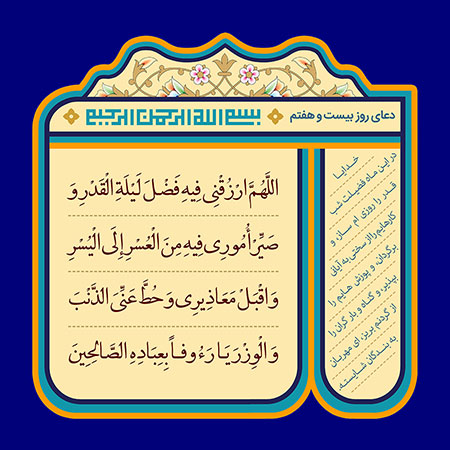 دعای روز بیست و هفتم
بسم الله الرحمن الرحیم
اللَّهُمَّ ارْزُقْنِی فِیهِ فَضْلَ لَیْلَةِ الْقَدْرِ وَ
صَیِّرْ أُمُورِی فِیهِ مِنَ الْعُسْرِ إِلَی الْیُسْرِ
وَ اقْبَلْ مَعَاذِیرِی وَ حُطَّ عَنِّیَ الذَّنْبَ
وَ الْوِزْرَ یَا رَءُوفاً بِعِبَادِهِ الصَّالِحِینَ
خدایا
در این ماه فضیلت شب
قدر را روزی ام ساز و
کارهایم را از سختی به آسانی
برگردان و پوزش هایم را
بپذیر و گناه و بار گران را
از گردنم بریز، ای مهربان
به بندگان شایسته.